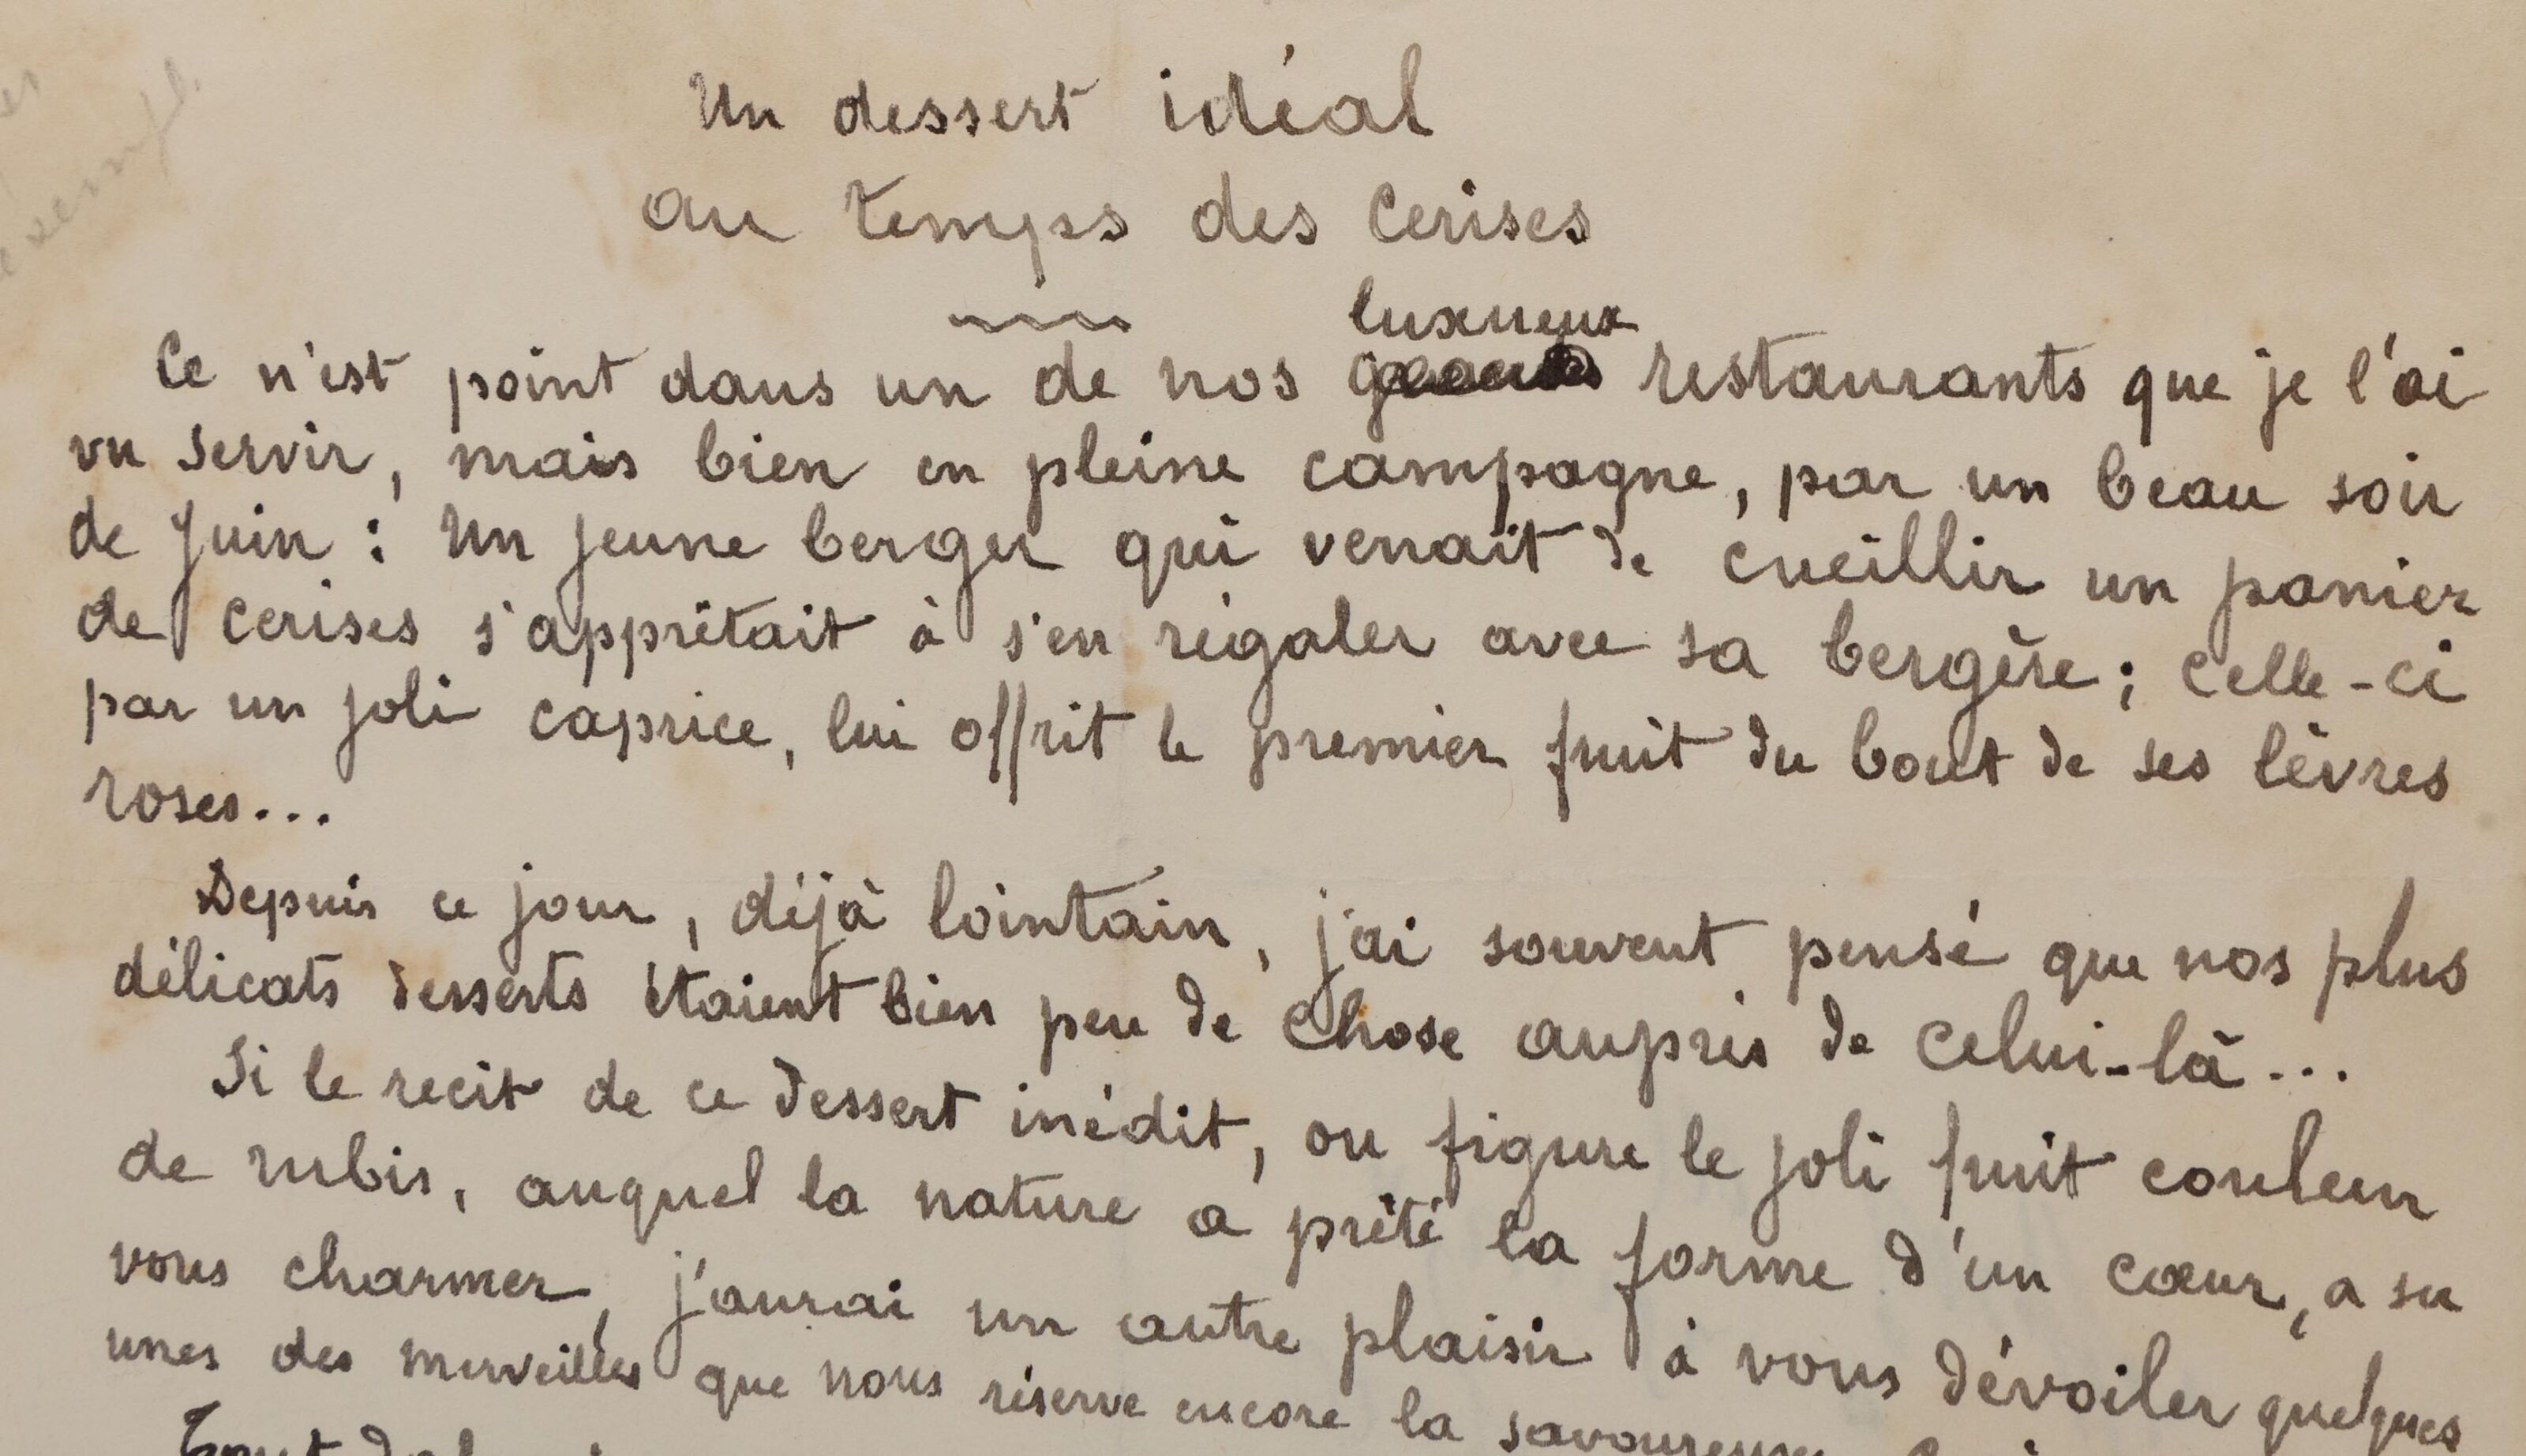 Un dessert idéal
au temps des Cerises
luxueux
Ce n'est point dans un de nos restaurants que je l'ai
vu servir, mais bien en pleine campagne, par un beau soir
de Juin : Un jeune berger qui venait de cueillir un panier
de cerises s'apprêtait à s'en régaler avec sa bergère ; celle-ci
par un joli caprice, lui offrit le premier fruit du bout de ses lèvres
roses...
Depuis ce jour, déjà lointain, j'ai souvent pensé que nos plus
délicats desserts étaient bien peu de chose auprès de celui-là...
Si le recit de ce dessert inédit, ou figure le joli fruit couleur
de rubis, auquel la nature a prêté la forme d'un cœur, a su
vous charmer, j'aurai un autre plaisir à vous dévoiler quelques
unes des merveilles que nous réserve encore la